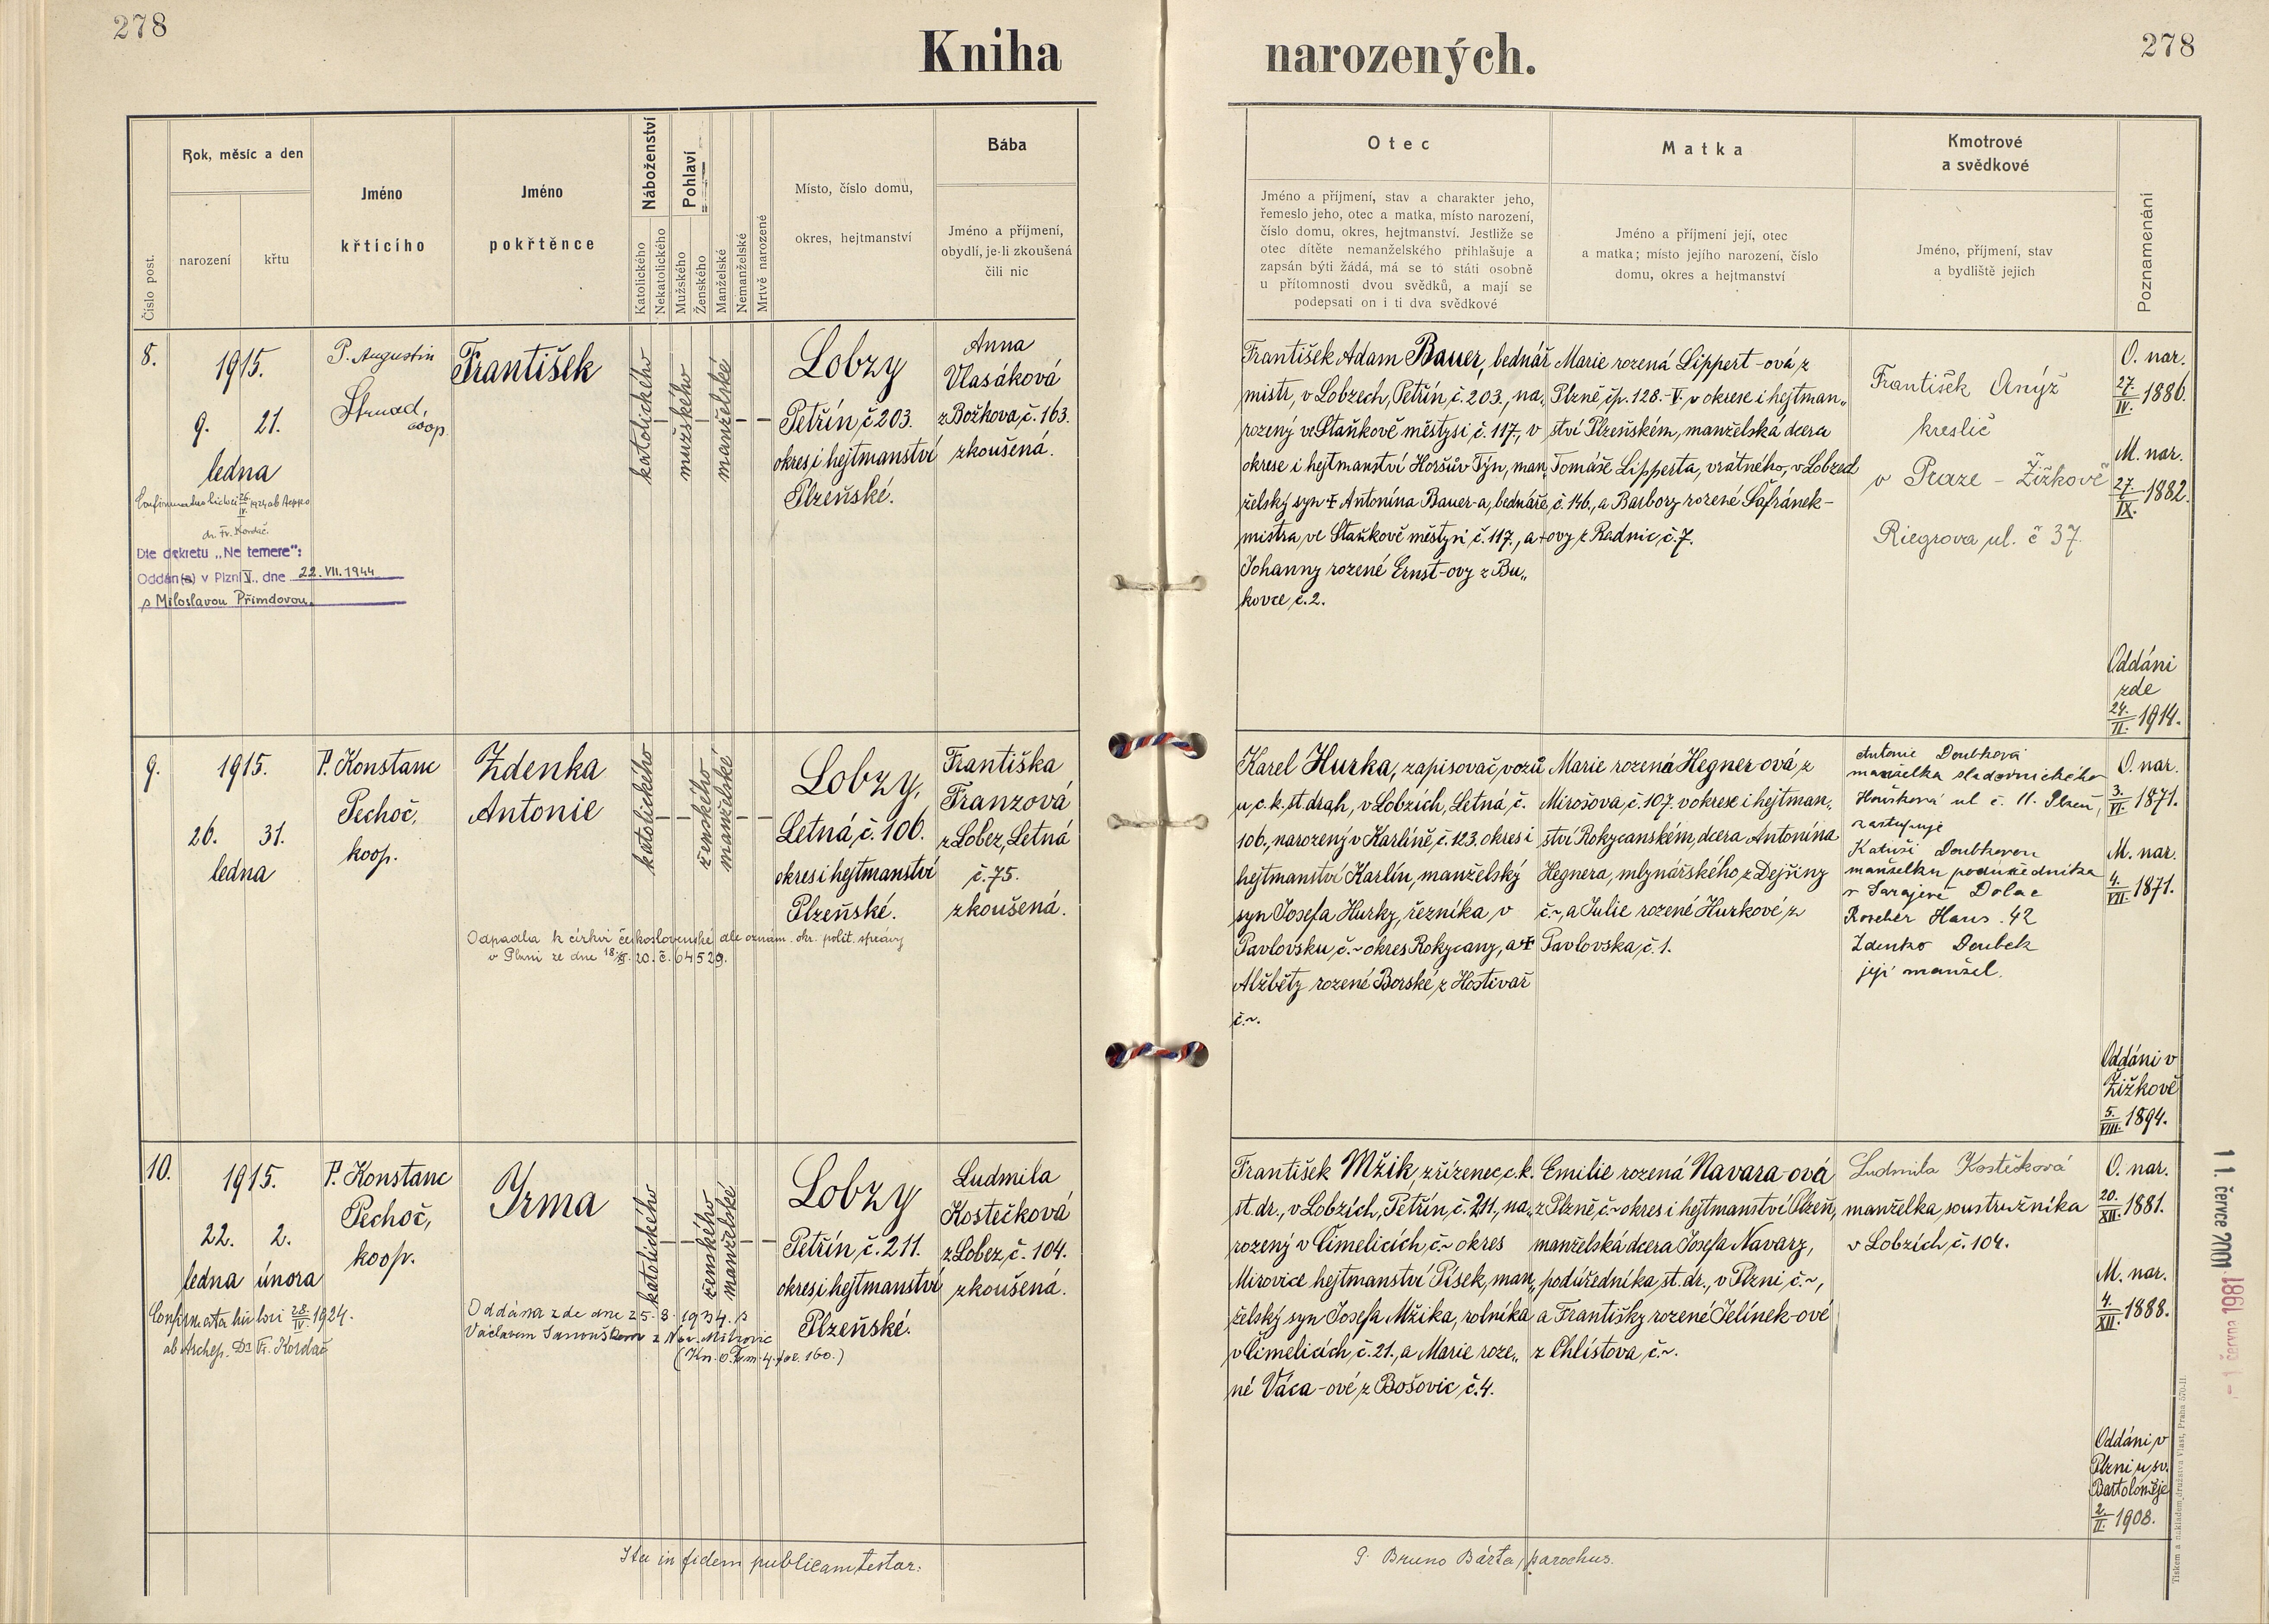 278
Kniha
narozených.
278
Číslo post.
Rok, měsíc a den
narození
křtu
Jméno
křtícího
Jméno
pokřtěnce
Náboženství
Katolického
Nekatolického
Pohlaví
Mužského
Ženského
Manželské
Nemanželské
Mrtvě narozené
Místo, číslo domu,
okres, hejtmanství
Bába
Jméno a příjmení,
obydlí, je-li zkoušená
čili nic
Otec
Jméno a příjmení, stav a charakter jeho,
řemeslo jeho, otec a matka, místo narození,
číslo domu, okres, hejtmanství. Jestliže se
otec dítěte nemanželského přihlašuje a
zapsán býti žádá, má se to státi osobně
u přítomnosti dvou svědků, a mají se
podepsati on i ti dva svědkové
Matka
Jméno a příjmení její, otec
a matka; místo jejího narození, číslo
domu, okres a hejtmanství
Kmotrové
a svědkové
Jméno, příjmení, stav
a bydliště jejich
Poznamenání
8.
1915.
9. 21.
ledna
26/IV. 1924 ab Aeppo
dr. Fr. Kordač.
Dle dekretu „Ne temere":
Oddán(a) v Plzni V., dne 22. VII. 1944
s Miloslavou Přimdovou.
P. Augustin
Strnad,
coop.
František
katolického
mužského
manželské
Lobzy
Petřín, č. 203.
okres i hejtmanství
Plzeňské.
Anna
Vlasáková
z Božkova, č. 163.
zkoušená.
František Adam Bauer, bednář
mistr, v Lobzech, Petřín, č. 203., na„
rozený ve Staňkově městysi, č. 117., v
okrese i hejtmanství Horšův Týn, man„
želský syn † Antonína Bauer-a, bednáře
mistra, ve Staňkově městysi č. 117., a †
Johanny rozené Ernst-ovy z Bu„
kovce, č. 2.
Marie rozená Lippert-ová z
Plzně čp. 128.-V. v okrese i hejtman„
ství Plzeňském, manželská dcera
Tomáše Lipperta, vrátného, v Lobzech
č. 146., a Barbory rozené Šafránek-
ovy z Radnic, č. 7.
František Anýž
kreslič
v Praze - Žižkově
Riegrova ul. č 37.
O. nar.
27./IV. 1886.
M. nar.
27./IX. 1882.
Oddáni
zde
24./II. 1914.
9.
1915.
26. 31.
ledna
P. Konstanc
Pechoč,
koop.
Zdenka
Antonie
katolického
ženského
manželské
Odpadla k církvi československé dle oznám. okr. polit. správy
v Plzni ze dne 20. č. 64529.
Lobzy,
Letná, č. 106.
okres i hejtmanství
Plzeňské.
Františka
Franzová
z Lobez, Letná
č. 75.
zkoušená.
Karel Hurka, zapisovač vozů
u c. k. st. drah, v Lobzích, Letná, č.
106., narozený v Karlíně, č. 123. okres i
hejtmanství Karlín, manželský
syn Josefa Hurky, řezníka v
Pavlovsku, č. ~ okres Rokycany, a †
Alžběty rozené Borské, z Hostivař
č. ~.
Marie rozená Hegner-ová, z
Mirošova, č. 107. v okrese i hejtman„
ství Rokycanském, dcera Antonína
Hegnera, mlynářského, z Dejšiny
č. ~, a Julie rozené Hurkové, z
Pavlovska, č. 1.
Antonie Doubková
manželka sladovnického
ul č. 11. Plzeň,
zastupuje
Doubkovou
manželku podúředníka
v Sarajevě Dolac
Haus. 42
Zdenko Doubek
její manžel.
O. nar.
3./VI. 1871.
M. nar.
4./VII. 1871.
Oddáni v
Žižkově
5./VIII. 1894.
10.
1915.
22. 2.
ledna února
28/IV. 1924.
ab Archep. Dr Fr. Kordač
P. Konstanc
Pechoč,
koop.
Irma
katolického
ženského
manželské
Oddána zde dne 25. 8. 1934. s
Václavem Janouškem z Nov. Mitrovic
(Kn. o. Tom. 4. fol. 160.)
Lobzy
Petřín, č. 211.
okres i hejtmanství
Plzeňské.
Ludmila
Kostečková
z Lobez, č. 104.
zkoušená.
František Mžik, zřízenec c. k.
st. dr., v Lobzích, Petřín, č. 211., na„
rozený v Čimelicích, č. ~ okres
Mirovice hejtmanství Písek, man„
želský syn Josefa Mžika, rolníka
v Čimelicích, č. 21., a Marie roze„
né Váca-ové, z Bošovic, č. 4.
Emilie rozená Navara-ová
z Plzně, č. ~ okres i hejtmanství Plzeň,
manželská dcera Josefa Navary,
podúředníka st. dr., v Plzni č. ~,
a Františky rozené Jelínek-ové
z Chlistova, č. ~.
Ludmila Kostečková
manželka soustružníka
v Lobzích, č. 104.
O. nar.
20./XII. 1881.
M. nar.
4./XII. 1888.
Oddáni v
Plzni u sv.
Bartoloměje
2./II. 1908.
11. července 2001
- 1. června 1981
Ita in fidem publicam testor:
P. Bruno Bárta, parochus.
Tiskem a nákladem družstva Vlast, Praha 570-II.